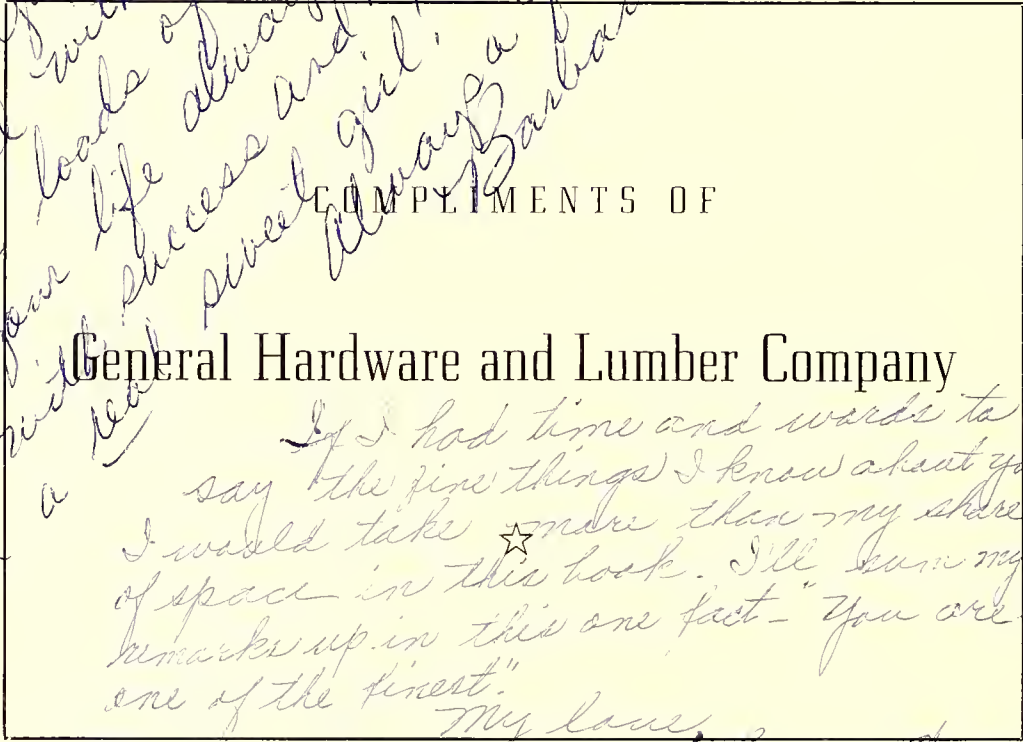 with
loads of
your life always
with success and
a real sweet girl!
Always a
COMPLIMENTS OF
General Hardware and Lumber Company
If I had time and words to
say the fine things I know about
I would take more than my share
of space in this book. I'll sum my
remarks up in this one fact - "You are
one of the finest."
My love,